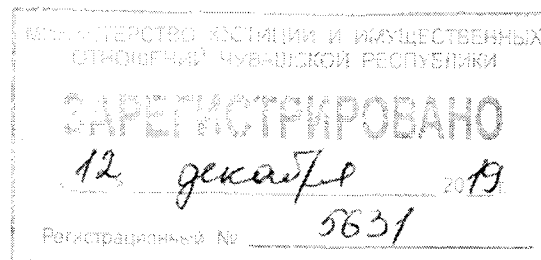 МИНИСТЕРСТВО ЮСТИЦИИ И ИМУЩЕСТВЕННЫХ
ОТНОШЕНИЙ ЧУВАШСКОЙ РЕСПУБЛИКИ
ЗАРЕГИСТРИРОВАНО
12 декабря 2019 г.
Регистрационный № 5631